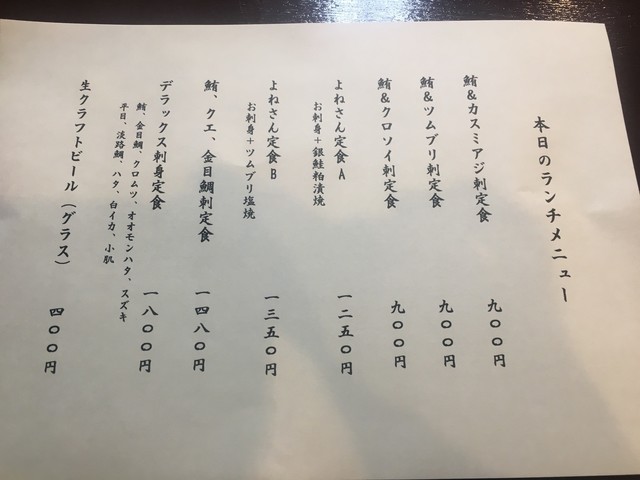 本日のランチメニュー
鮪&カスミアジ刺定食 九〇〇円
鮪&ツムブリ刺定食 九〇〇円
鮪&クロソイ刺定食 九〇〇円
よねさん定食A 一二五〇円
お刺身+銀鮭粕漬焼
よねさん定食B 一三五〇円
お刺身+ツムブリ塩焼
鮪、クエ、金目鯛刺定食 一四八〇円
デラックス刺身定食 一八〇〇円
鮪、金目鯛、クロムツ、オオモンハタ、スズキ
平目、淡路鯛、ハタ、白イカ、小肌
生クラフトビール(グラス) 四〇〇円